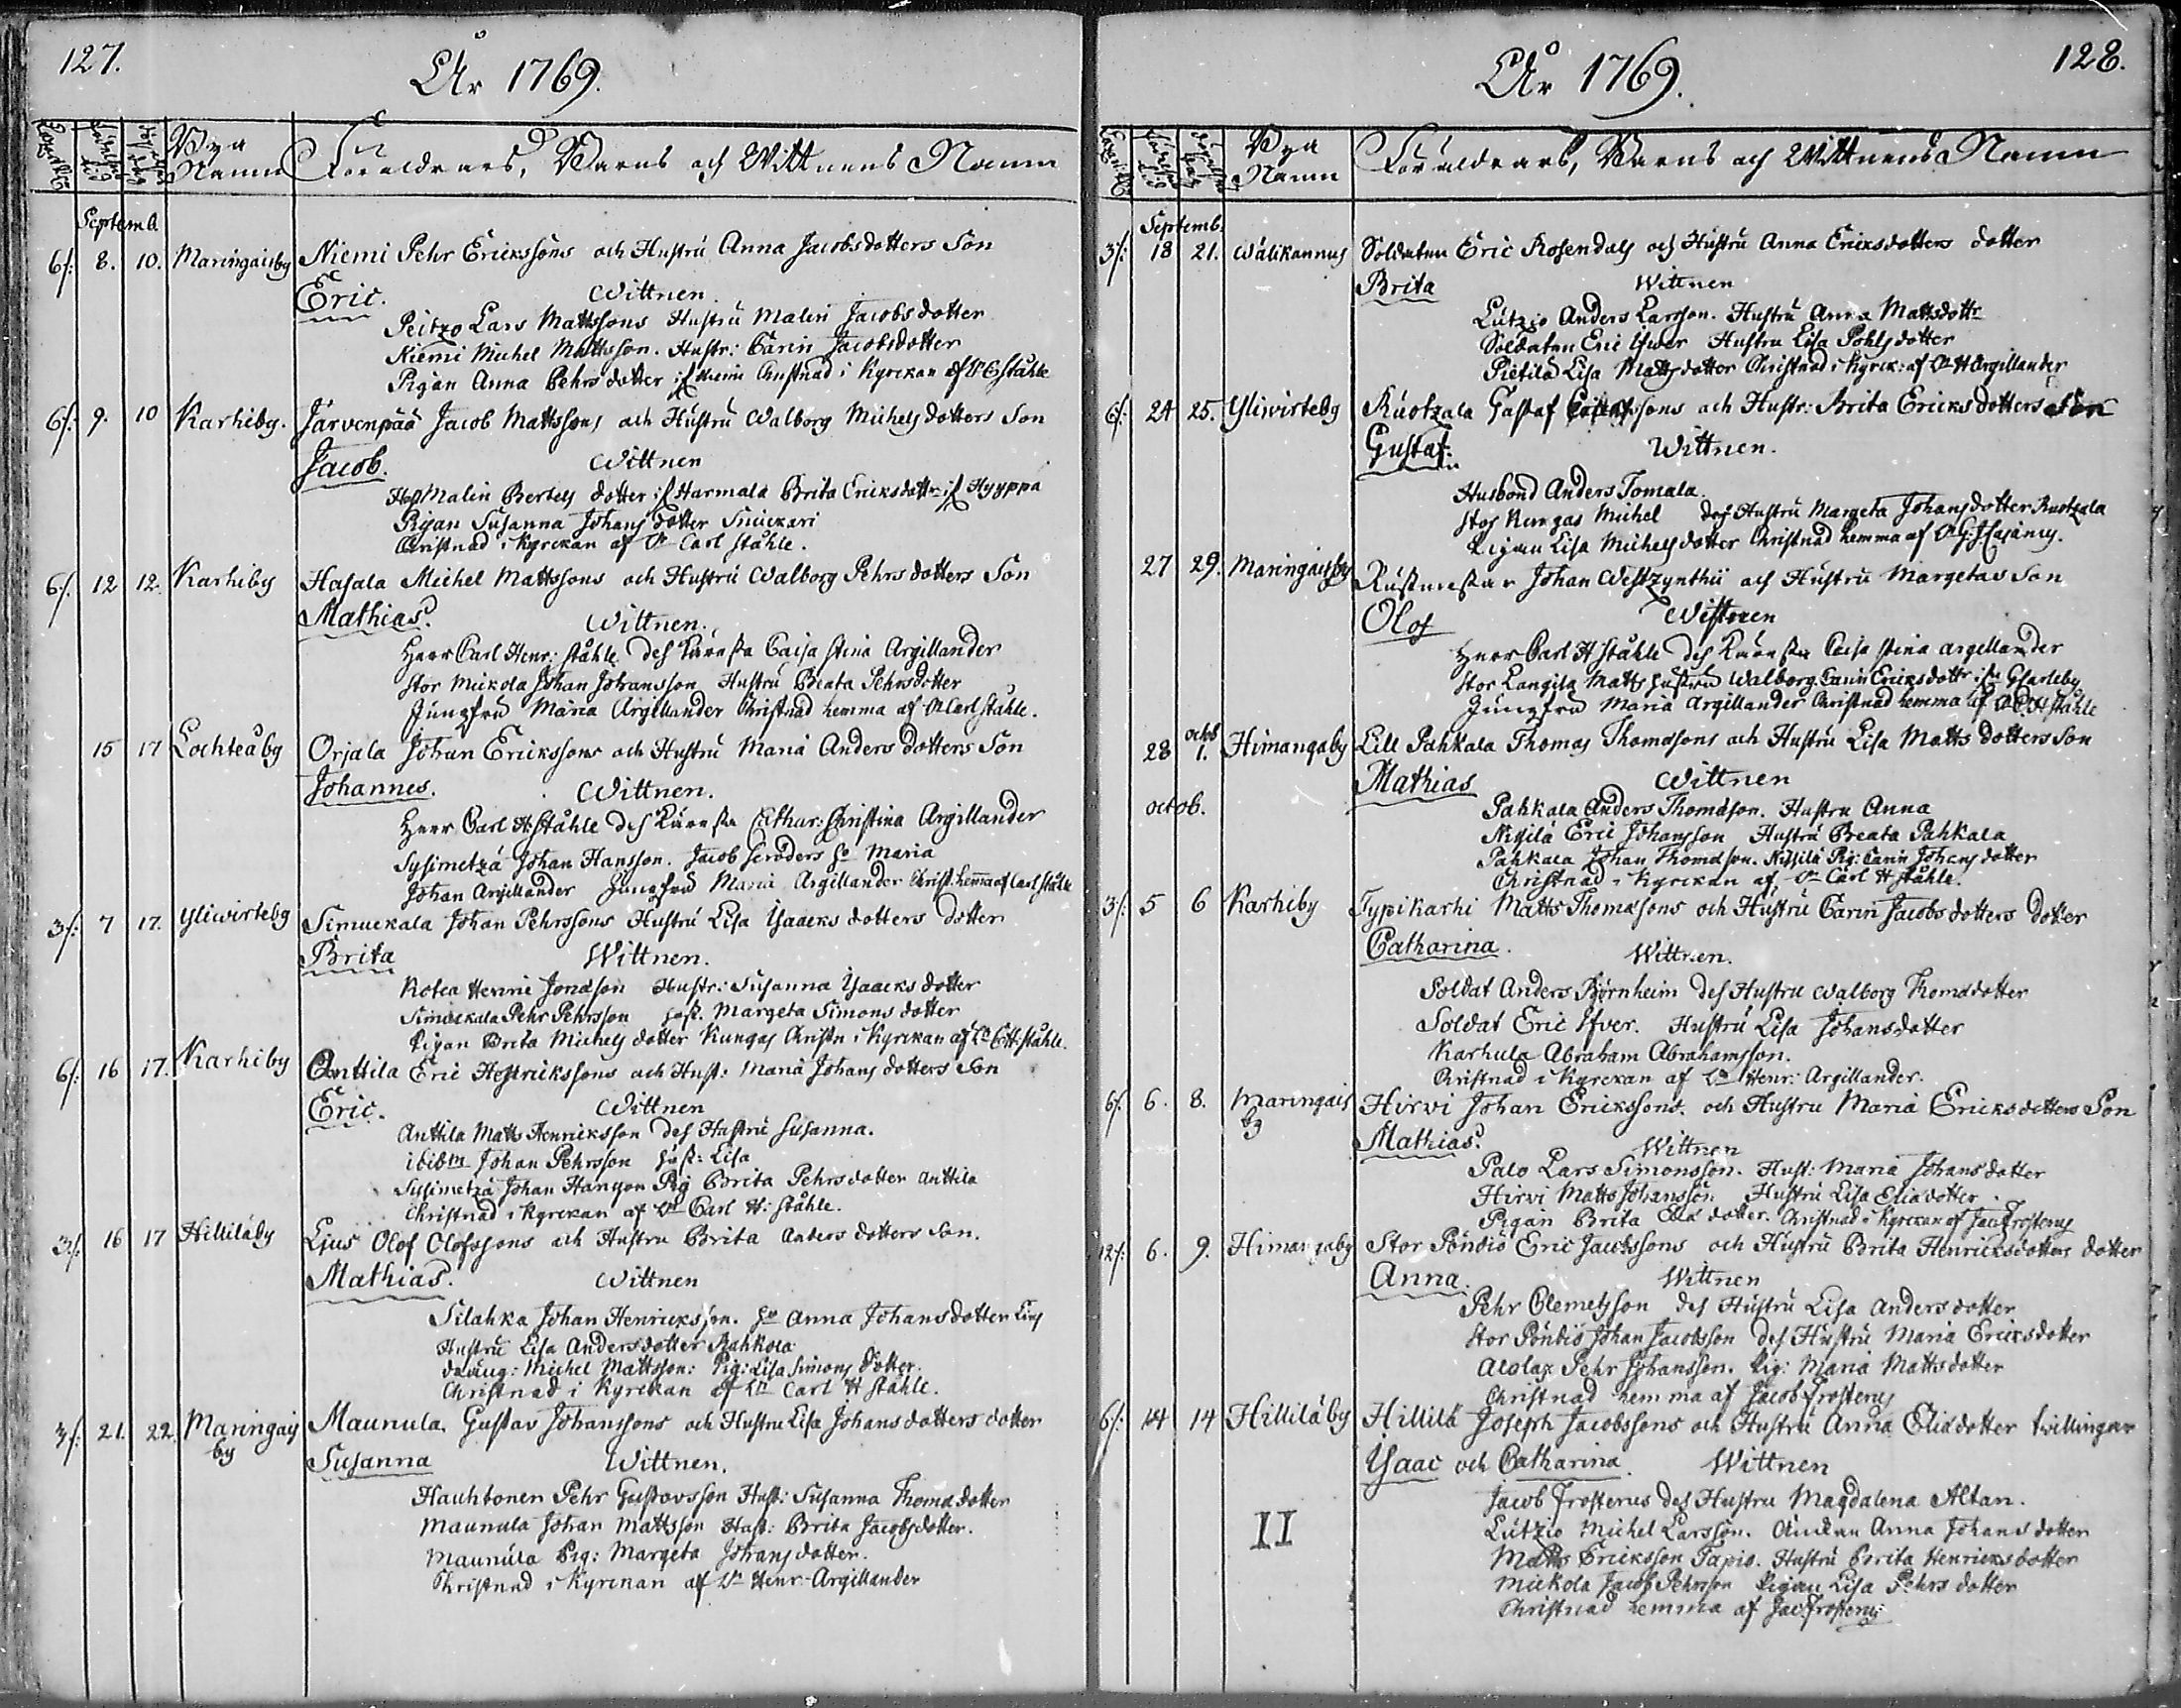 127.
År 1769.
Födelse tid
Bya Namn
Föräldrars, Barns och Wittnens Namn
Septemb.
6f: 8. 10. Maringaisby Niemi Pehr Erickssons och Hustru Anna Jacobsdotters Son
Eric. Wittnen.
Peitzo Lars Mattssons Hustru Malin Jacobsdotter
Niemi Michel Mattsson. Hustr: Carin Jacobsdotter
Pigan Anna Pehrsdotter Christnad i Kyrckan af Ståhle
6f: 9. 10 Karhiby. Järvenpää Jacob Mattssons och Hustru Walborg Michels dotters Son
Jacob. Wittnen
Malin Bertels dotter Harmala Brita Ericksdottr Hyyppä
Pigan Susanna Johans dotter Simckari
Christnad i Kyrckan af Carl Ståhle.
6f. 12 12. Karhiby Hasala Michel Mattssons och Hustru Walborg Pehrs dotters Son
Mathias. Wittnen.
Herr Carl Henr: Ståhle des Käresta Caisa Stina Argillander
Stor Mickola Johan Johansson Hustru Beata Pehrsdotter
Jungfru Maria Argillander Christnad hemma af Carl Ståhle.
15 17 Lochteåby Orjala Johan Erickssons och Hustru Maria Anders dotters Son
Johannes. Wittnen.
Herr Carl H: Ståhle des Käresta Cathar: Christina Argillander
Sysimetzä Johan Hansson. Jacob Scröders Maria
Johan Argillander Jungfru Maria Argillander Christ. hemma af Carl Ståhle
3f: 7 17. Yliwirteby Simuckala Johan Pehrssons Hustru Lisa Isaacks dotters dotter
Brita Wittnen.
Kotea Henric Jonasson Hustr: Susanna Isaacks dotter
Simuckala Pehr Pehrsson Hust. Margeta Simons dotter
Pigan Brita Michels dotter Kungas Christn i Kyrckan af Ståhle.
6f: 16 17. Karhiby Anttila Eric Henrickssons och Hust: Maria Johans dotters Son
Eric. Wittnen
Anttila Matts Henricksson des Hustru Susanna.
ibidm Johan Pehrsson Hust: Lisa
Sysimetzä Johan Hansson Pig Brita Pehrsdotter Anttila
Christnad i Kyrckan af Carl H: Ståhle.
3f: 16 17 Hilliläby Ljus Olof Olofssons och Hustru Brita Anders dotters Son.
Mathias. Wittnen
Silahka Johan Henricksson. Anna Johansdotter Lius
Hustru Lisa Andersdotter Pahkala
dräng: Michel Mattsson: Pig: Lisa Simons dotter.
Christnad i Kyrckan af Carl H Ståhle.
3f: 21. 22. Maringais by Maunula Gustav Johanssons och Hustru Lisa Johans dotters dotter
Susanna Wittnen.
Hauhtonen Pehr Gustavsson Hust: Susanna Thoma dotter
Maunula Johan Mattsson Hust: Brita Jacobsdotter.
Maunula Pig: Margeta Johans dotter.
Christnad i Kyrckan af Henr. Argillander
128.
År 1769.
Bya Namn
Föräldrars, Barns och Wittnens Namn
Septemb.
3f: 18 21. Wälikannus Soldaten Eric Rosendals och Hustru Anna Ericksdotters dotter
Brita Wittnen
Lutzio Anders Larsson. Hustru Anna Mattsdottr
Soldaten Eric Ifwer Hustru Lisa Pohls dotter
Pietilä Lisa Matts dotter Christnad i Kyrck: af Argillander
6f: 24 25. Yliwirteby Ruotzala Gustaf Gustafssons och Hustr: Brita Ericks dotters Son
Gustaf. Wittnen.
Husbond Anders Tomala.
Stor Kungas Michel des Hustru Margeta Johansdotter Ruotzala
Pigan Lisa Michels dotter Christnad hemma af
27 29. Maringaisby Rustmestar Johan Westzynthii och Hustru Margetas Son
Olof Wittnen
Herr Carl H Ståhle des Käresta Caisa Stina Argillander
Stor Langila Matts Hustru Walborg. Carin Ericksdottr
Jungfru Maria Argillander Christnad hemma af Ståhle
28 octob 1. Himangaby Lill Pahkala Thomas Thomassons och Hustru Lisa Matts dotters Son
Mathias Wittnen
octob.
Pahkala Anders Thomasson. Hustru Anna
Nisilä Eric Johansson Hustru Beata Pahkala
Pahkala Johan Thomasson. Nisilä Pig: Carin Johans dotter
Christnad i Kyrckan af Carl H Ståhle.
3f: 5 6 Karhiby Typikarhi Matts Thomassons och Hustru Carin Jacobs dotters dotter
Catharina. Wittnen.
Soldat Anders Björnheim des Hustru Walborg Thomadotter
Soldat Eric Ifver. Hustru Lisa Johansdotter
Karhula Abraham Abrahamsson.
Christnad i Kyrckan af Henr: Argillander.
6f: 6. 8. Maringais by Hirvi Johan Erickssons. och Hustru Maria Ericksdotters Son
Mathias. Wittnen
Palo Lars Simonsson. Hust: Maria Johans dotter
Hirvi Matts Johansson Hustru Lisa Eliædotter.
Pigan Brita Eliæ dotter. Christnad i Kyrckan af Jac Frosterus
12f: 6. 9. Himangaby Stor Pöndiö Eric Jacobssons och Hustru Brita Henricksdotters dotter
Anna. Wittnen
Pehr Clemetsson des Hustru Lisa Anders dotter
Stor Pöndiö Johan Jacobsson des Hustru Maria Ericksdotter
Alolax Pehr Johansson. Pig: Maria Mattsdotter
Christnad hemma af Jacob Frosterus
6f: 14 14 Hilliläby Hillilä Joseph Jacobssons och Hustru Anna Eliædotter twillingar
Isaac och Catharina. Wittnen
Jacob Frosterus des Hustru Magdalena Altan.
II
Lutzio Michel Larsson. Änckan Anna Johans dotter
Matts Ericksson Tapio. Hustru Brita Henricksdotter
Mickola Jacob Pehrsson Pigan Lisa Pehrs dotter
Christnad hemma af Jac Frosterus